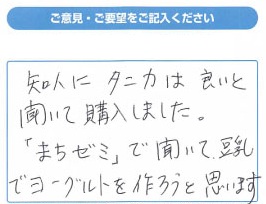 ご意見・ご要望をご記入ください
知人に タニカは 良いと
聞いて 購入しました。
「まちゼミ」で聞いて、豆乳
でヨーグルトを作ろうと思います